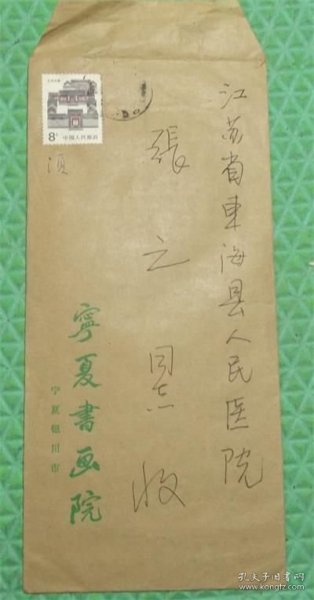 江苏省東海县人民医院
張之同志收
8分 中国人民邮政
寧夏書画院
宁夏银川市
孔夫子旧书网
www.kongfz.com